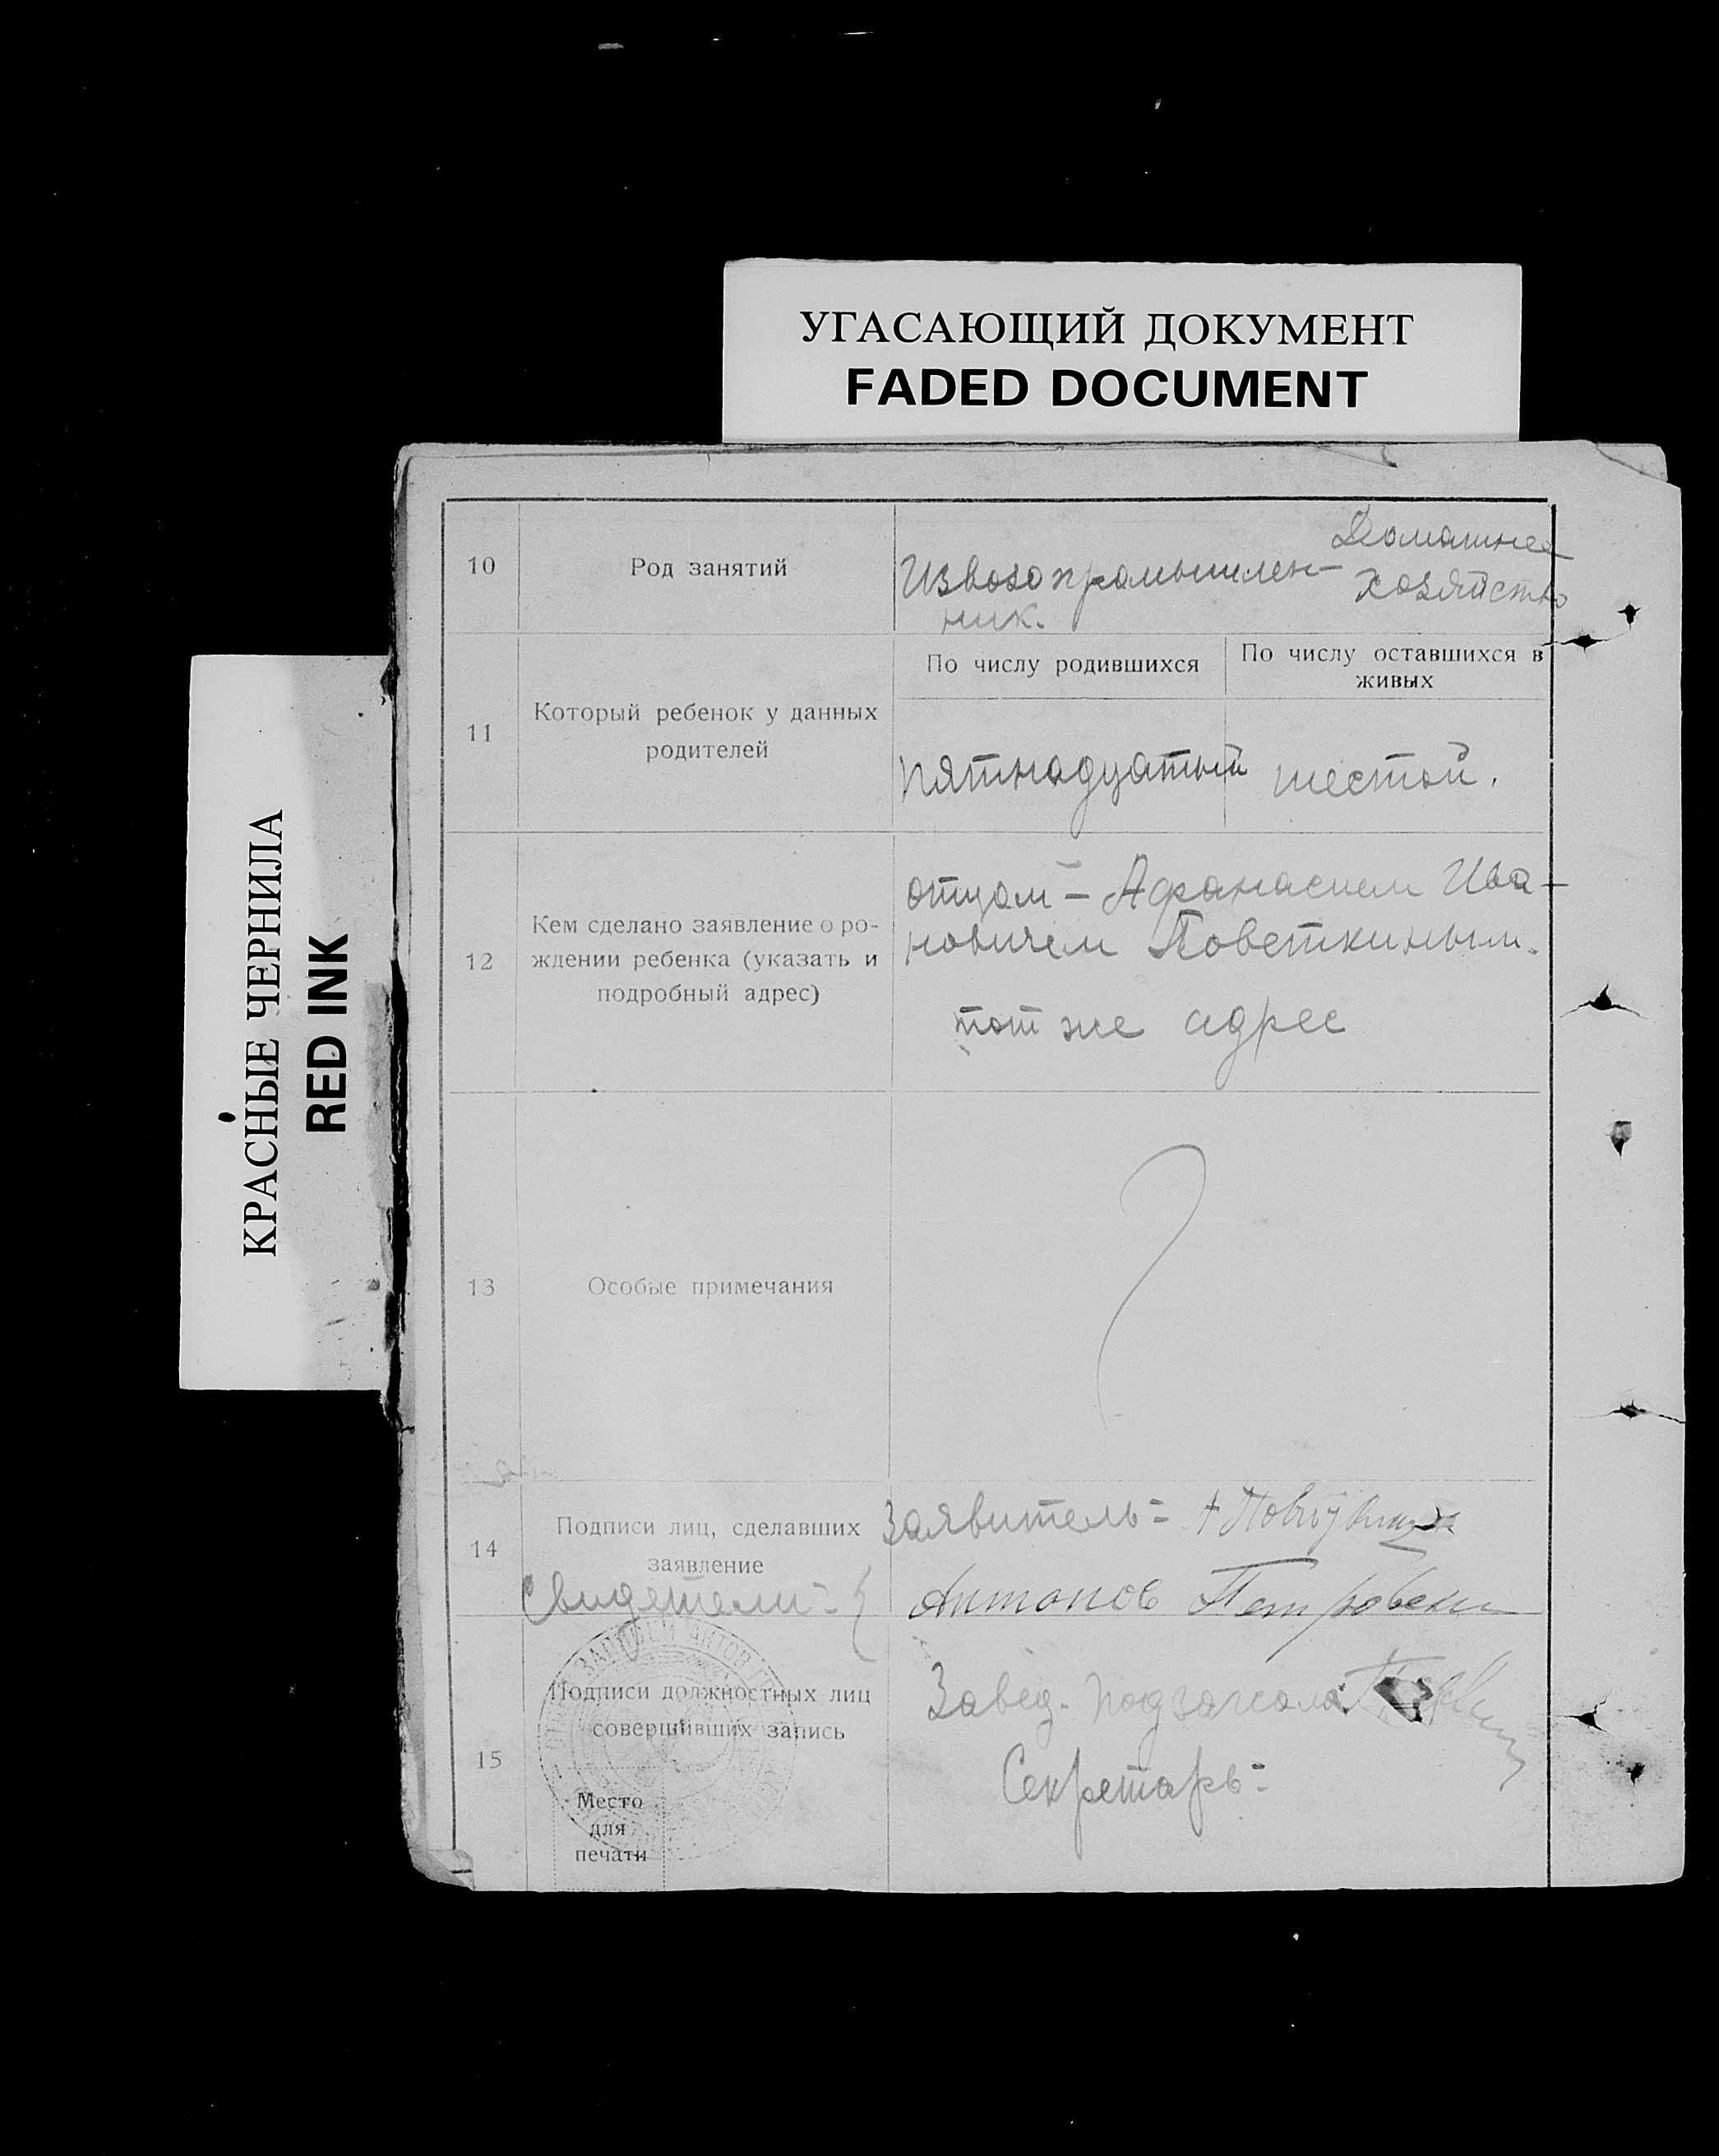 УГАСАЮЩИЙ ДОКУМЕНТ
FADED DOCUMENT
КРАСНЫЕ ЧЕРНИЛА
RED INK
10
Род занятий
Извозопромышлен-
ник.
Домашнее
хозяйство
11
Который ребенок у данных
родителей
По числу родившихся
По числу оставшихся в
живых
пятнадцатый
шестой.
12
Кем сделано заявление о ро-
ждении ребенка (указать и
подробный адрес)
отцом - Афанасием Ива-
новичем Поветкиным.
тот же адрес
13
Особые примечания
14
Подписи лиц, сделавших
заявление
Свидетели =
Заявитель =
Антонов
15
Подписи должностных лиц
совершивших запись
Место
для
печати
ЗАПИСИ АКТОВ
Завед. подзагсом
Секретарь =